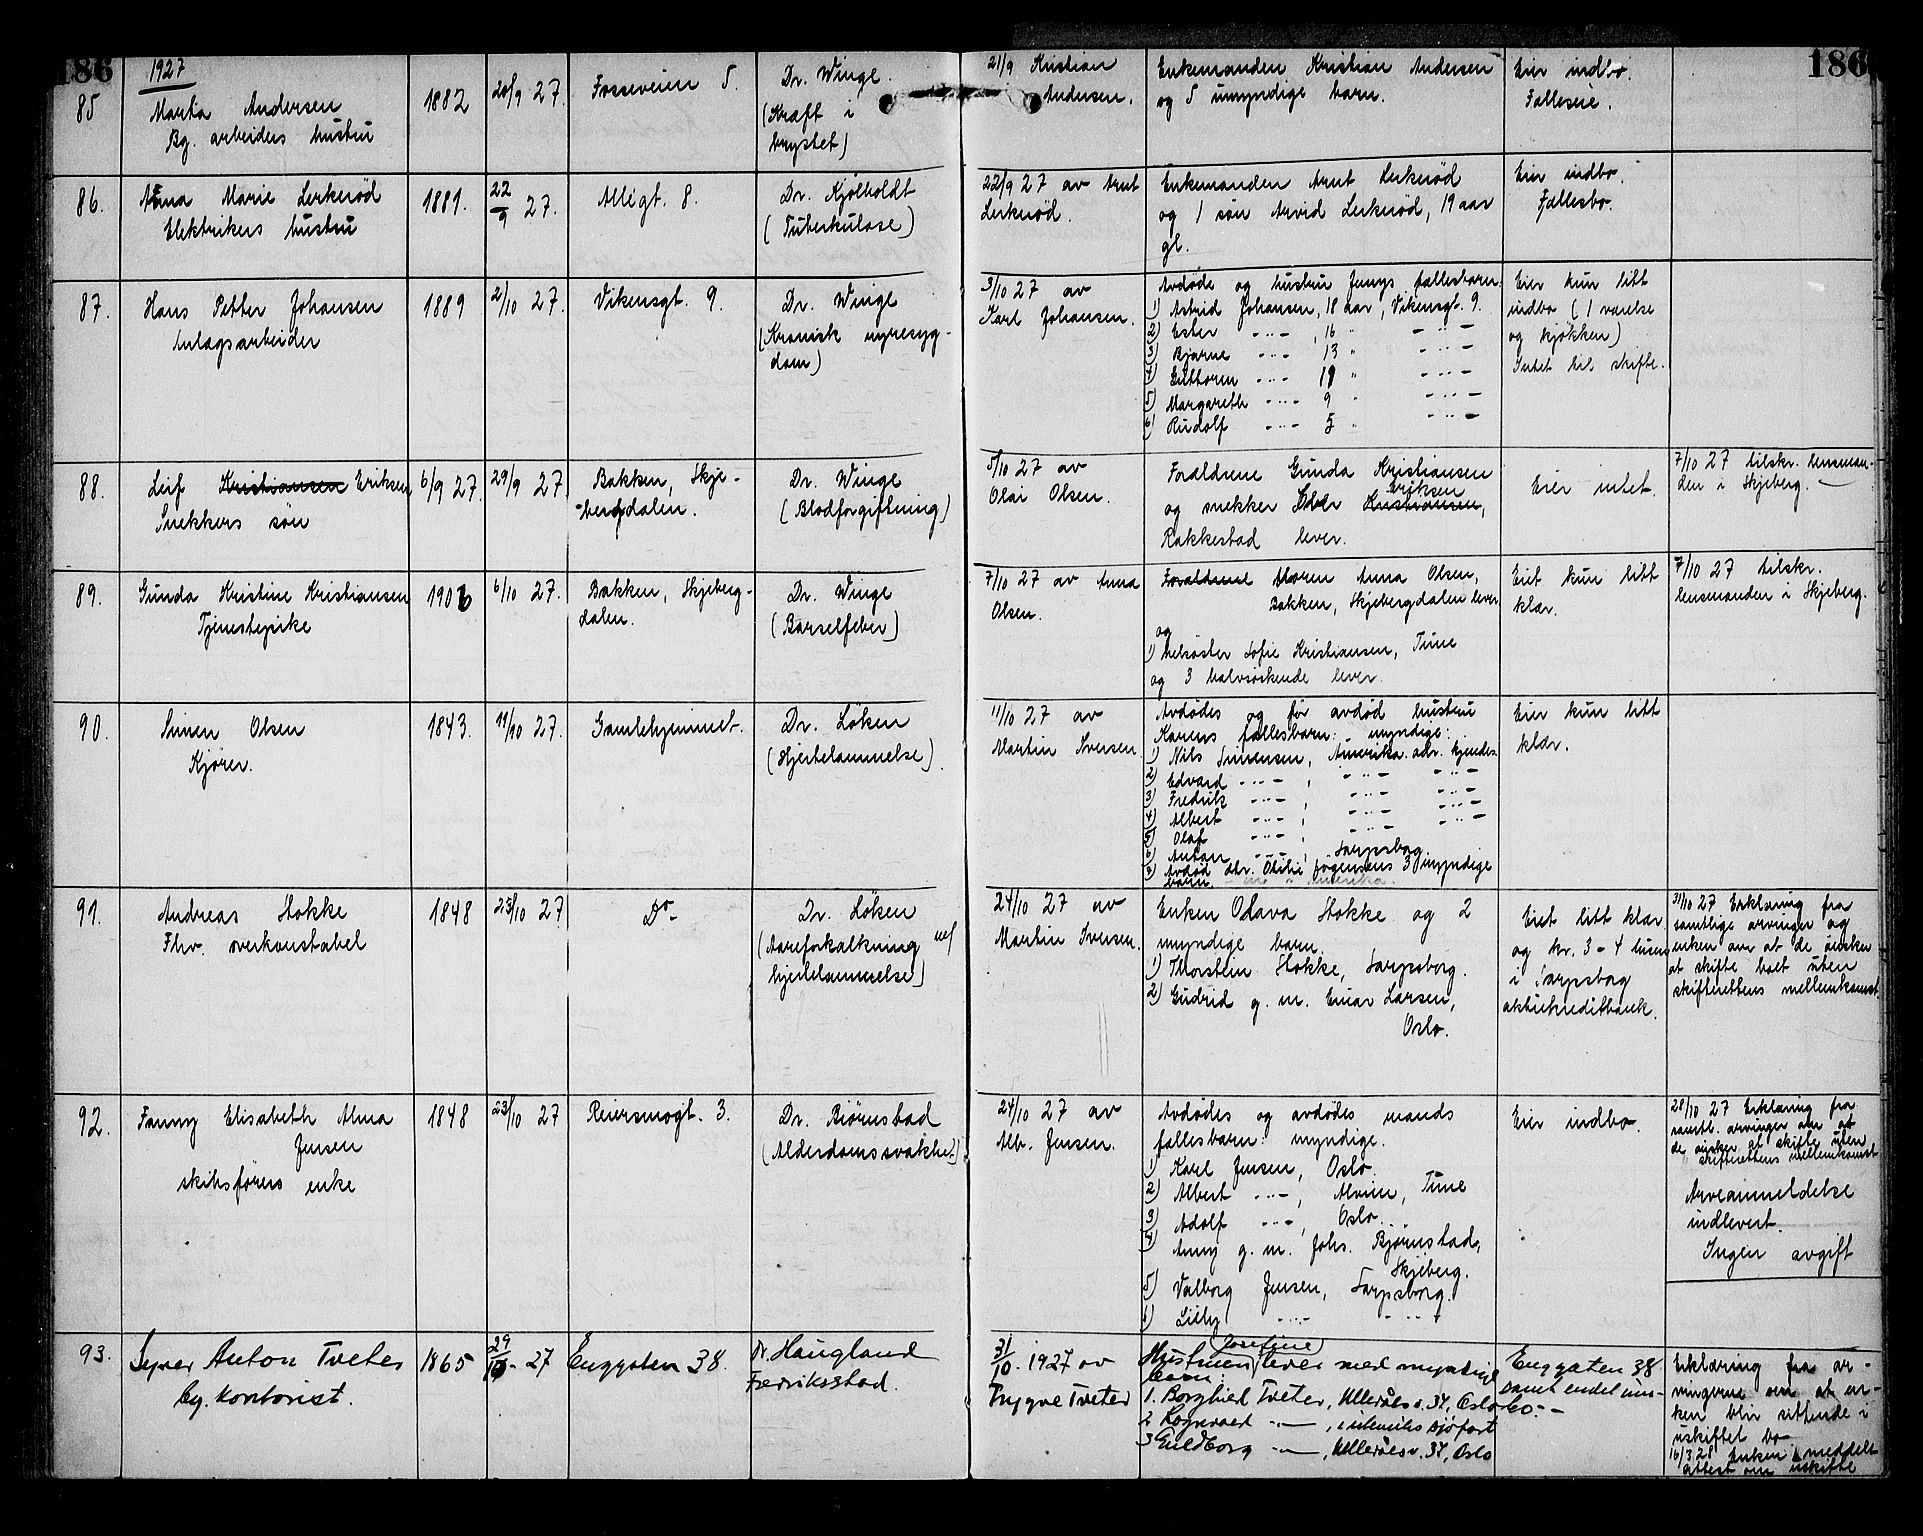 186
186
1927
85
Marta Andersen
Bg. arbeiders hustru
1882
20/9 27.
Fosseveien 5.
Dr. Winge.
(Kræft i
brystet)
21/9 Kristian
Andersen.
Enkemanden Kristian Andersen
og 5 umyndige barn.
Eier indbo.
Fælleseie.
86.
Anna Marie Lerkerød
Elektrikers hustru
1881.
22/9 27.
Allégt. 8.
Dr. Kjølholdt
(Tuberkulose)
22/9 27 av Arnt
Lerkerød.
Enkemanden Arnt Lerkerød
og 1 søn Arvid Lerkerød, 19 aar
gl.
Eier indbo.
Fællesbo.
87.
Hans Petter Johansen
Anlægsarbeider
1889
2/10 27.
Vikensgt. 9.
Dr. Winge
(Kronisk nyresyg-
dom)
3/10 27 av
Karl Johansen.
Avdøde og hustru Jennys fællesbarn.
1) Astrid Johansen, 18 aar, Vikensgt. 9.
2) Ester -"- , 16 " -"-
3) Bjarne -"- 13 " -"-
4) Guttorm -"- 11 " -"-
5) Margareth -"- 9 " -"-
6) Rudolf -"- 5 " -"-
Eier kun litt
indbo (1 værelse
og kjøkken)
Intet til skifte.
88.
Leif Kristiansen Eriksen
Snekkers søn
6/9 27.
29/9 27
Bakken, Skje-
-bergdalen.
Dr. Winge
(Blodforgiftning)
5/10 27 av
Olai Olsen.
Forældrene Gunda Kristiansen
Eriksen
og snekker Kristiansen,
Rakkestad lever.
Eier intet.
7/10 27 tilskr. lensman-
den i Skjeberg.
89.
Gunda Kristine Kristiansen
Tjenestepike
1906
6/10 27.
Bakken, Skjeberg-
dalen.
Dr. Winge
(Barselfeber)
7/10 27 av Anna
Olsen.
Forældrene Moren Anna Olsen,
Bakken, Skjebergdalen lever
og
1) helsøster Sofie Kristiansen, Tune
og 3 halvsøskende lever.
Eiet kun litt
klær.
7/10 27 tilskr.
lensmanden i Skjeberg.
90.
Simen Olsen
Kjører.
1843.
11/10 27.
Gamlehjemmet.
Dr. Løken
(Hjertelammelse).
11/10 27 av
Martin Iversen
Avdødes og før avdød hustru
Karens fællesbarn: myndige:
1) Nils Simensen, Amerika. adr. kjendes
2) Edvard -"- , -"- -"-
3) Fredrik -"- , -"- -"-
4) Albert -"- , -"- -"-
5) Olaf -"- , -"-
6) Anton -"- , Sarpsborg.
Avdød dtr. Otilie Jørgensens 3 umyndige
barn.
Eier kun litt
klær.
91.
Andreas Stokke
Fhv. overkonstabel
1848
23/10 27
Do-
Dr. Løken
(Aareforkalkning m/
hjertelammelse)
24/10 27 av
Martin Iversen.
Enken Olava Stokke og 2
myndige barn.
1) Thorstein Stokke, Sarpsborg.
2) Gudrid g. m. Einar Larsen,
Oslo.
Eiet litt klær
og kr. 3 - 4 tusen
i Sarpsborg
aktiekreditbank.
31/10 27 Erklæring fra
samtlige arvinger og
enken om at de ønsker
at skifte boet uten
skifterettens mellemkomst.
92.
Fanny Elisabeth Alma
Jensen
skibsførers enke
1848
23/10 27
Reiersmogt. 3.
Dr. Bjørnstad
(Alderdomssvakhet)
24/10 27 av
Alb. Jensen.
Avdødes og avdødes mands
fællesbarn: myndige.
1) Karl Jensen, Oslo.
2) Albert -"- , Alvim, Tune
3) Adolf -"- , Oslo.
4) Anny g. m. Johs. Bjørnstad,
Skjeberg.
5) Valborg Jensen, Sarpsborg.
6) Lilly -"- -"-
Eier indbo.
28/10 27 Erklæring fra
samtl. arvinger om at
de ønsker at skifte uten
skifterettens mellemkomst
Arveanmeldelse
indlevert.
Ingen avgift
93.
Syver Anton Tveter
bg. kontorist.
1865
29/10 - 27
Enggaten 38.
Dr. Haugland
Fredriksstad.
31/10. 1927 av
Trygve Tveter
Josefine
Hustruen lever med myndige
barn:
1. Borghild Tveter, Ullevålsv. 37, Oslo
2 Rognvald -"- , i utenriks sjøfart
3 Guldborg -"- , Ullevålsv. 37, Oslo
Enggaten 38
samt endel inn-
bo. -
Erklæring fra ar-
vingerne om at en-
ken blir sittende i
uskiftet bo
16/3 28 Enken meddelt
attest om uskifte